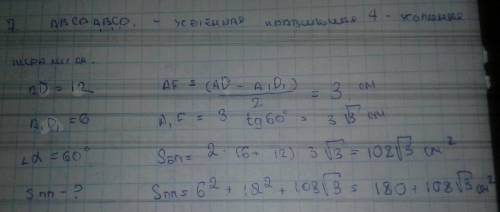 7 ABCDA₁B₁C₁D₁ - усеченная правильная 4 - угольная
пирамида.
AD = 12 AF = (AD - A₁D₁) / 2 = 3 см
A₁D₁ = 6 A₁F = 3 tg60° = 3√3 см
∠α = 60° Sбп = 2 · (6 + 12) 3√3 = 108√3 см²
Sпп - ? Sпп = 6² + 12² + 108√3 = 180 + 108√3 см²